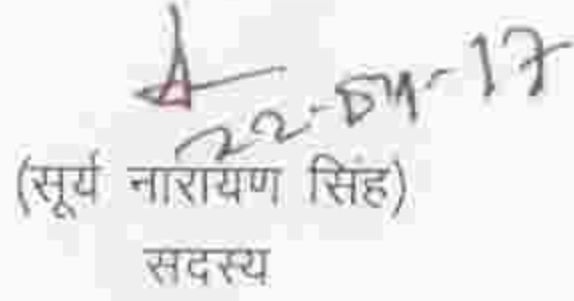 22-04-17
(सूर्य नारायण सिंह)
सदस्य